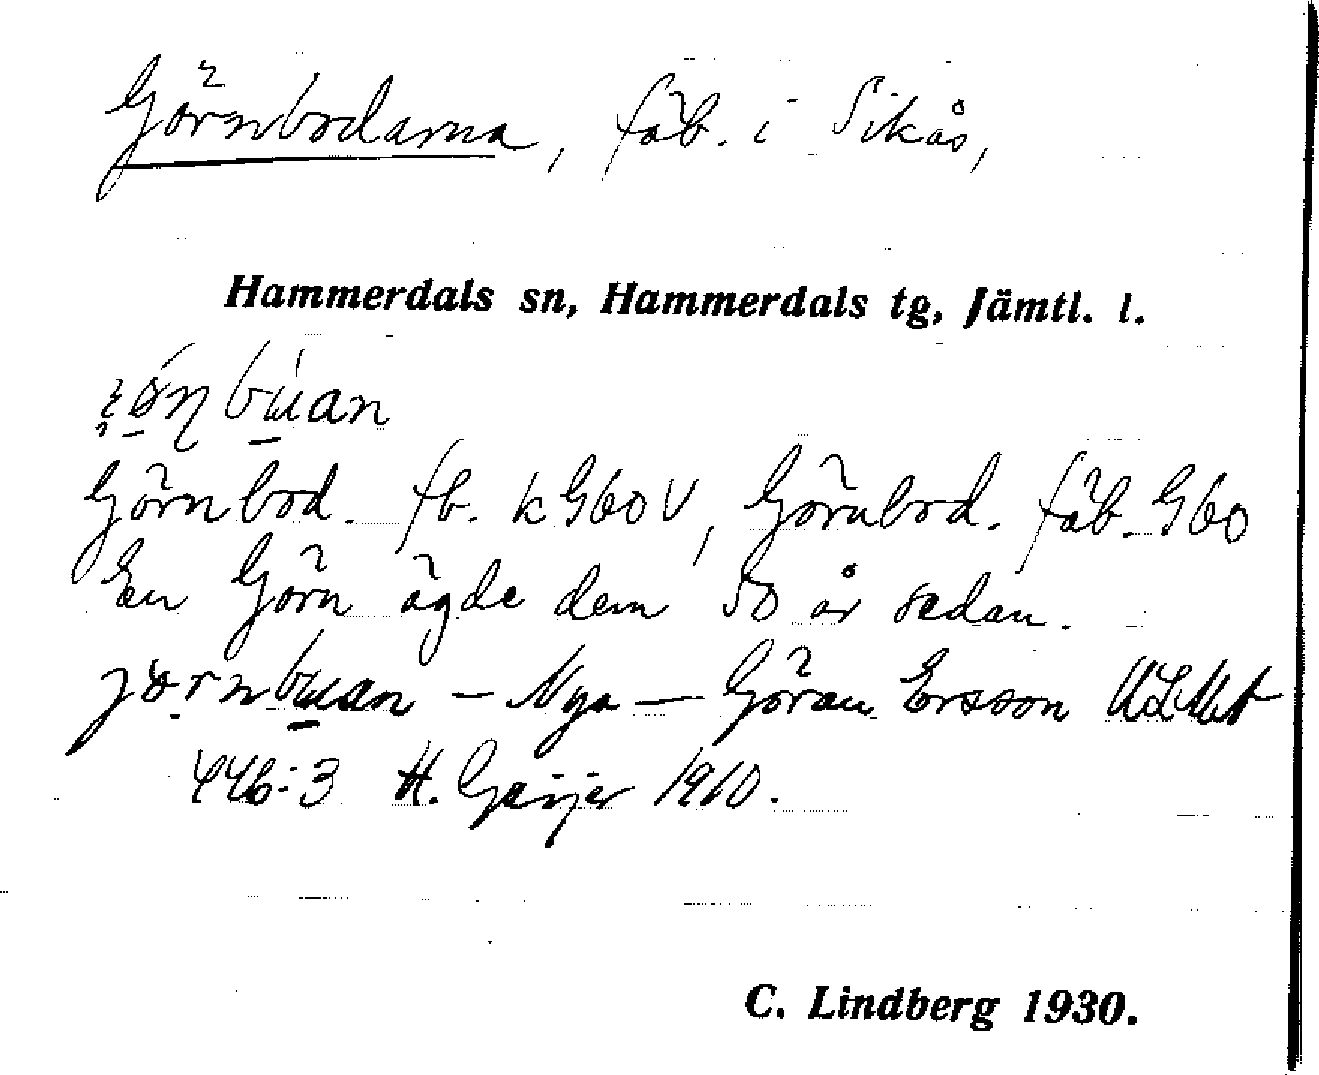 Görnbodarna, fäb. i Sikås,
Hammerdals sn, Hammerdals tg, Jämtl. l.
Görnbod. fb. k G60 V, Görnbod. fäb. G60
En Görn ägde dem 50 år sedan.
jörnbuan — Nya — Göran Ersson ULMA
446:3 H. Geijer 1910.
C. Lindberg 1930.